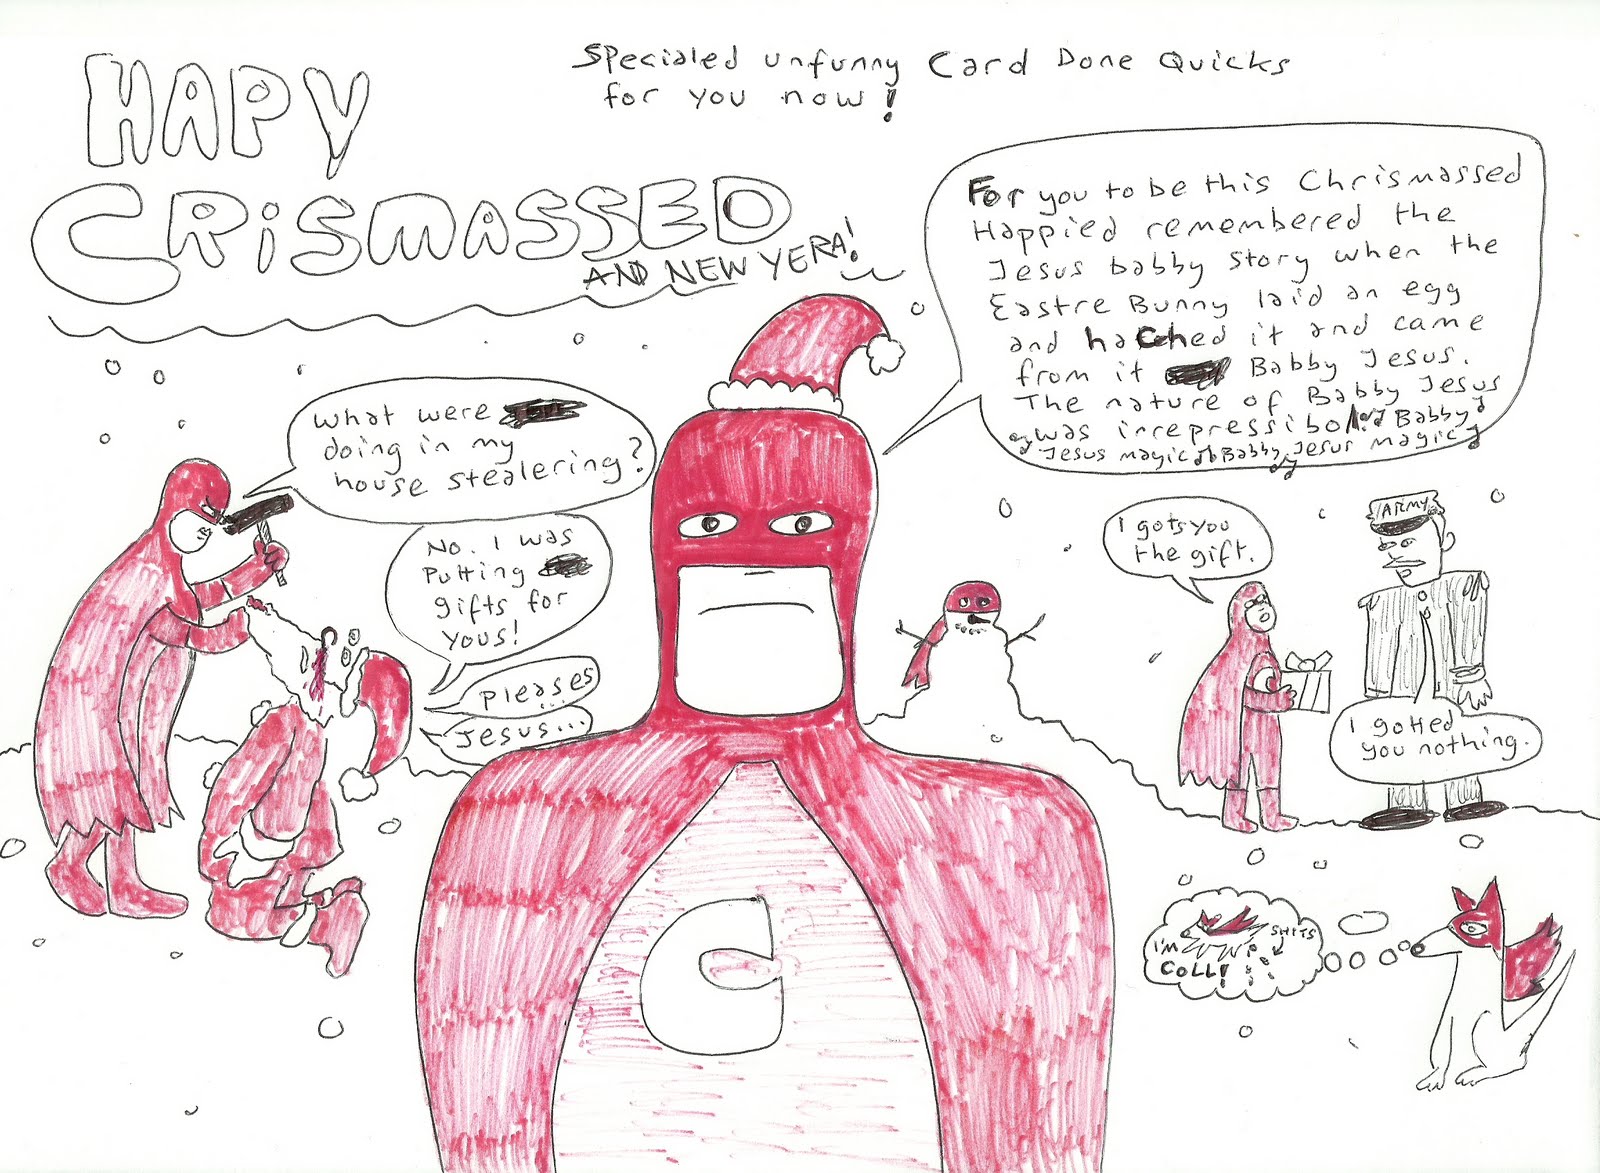 HAPY
CRiSMASSED
AND NEW YERA!
Specialed unfunny Card Done Quicks
for you now!
For you to be this Chrismassed
Happied remembered the
Jesus babby story when the
Eastre Bunny laid an egg
and hached it and came
from it Babby Jesus.
The nature of Babby Jesus
was irrepressibol. Babby
Jesus magic Babby Jesus magic
What were
doing in my
house stealering?
No. I was
Putting
gifts for
yous!
Pleases
...
Jesus...
I gots you
the gift.
ARMY
I gotted
you nothing.
I'M
COLL!
SHITS
G